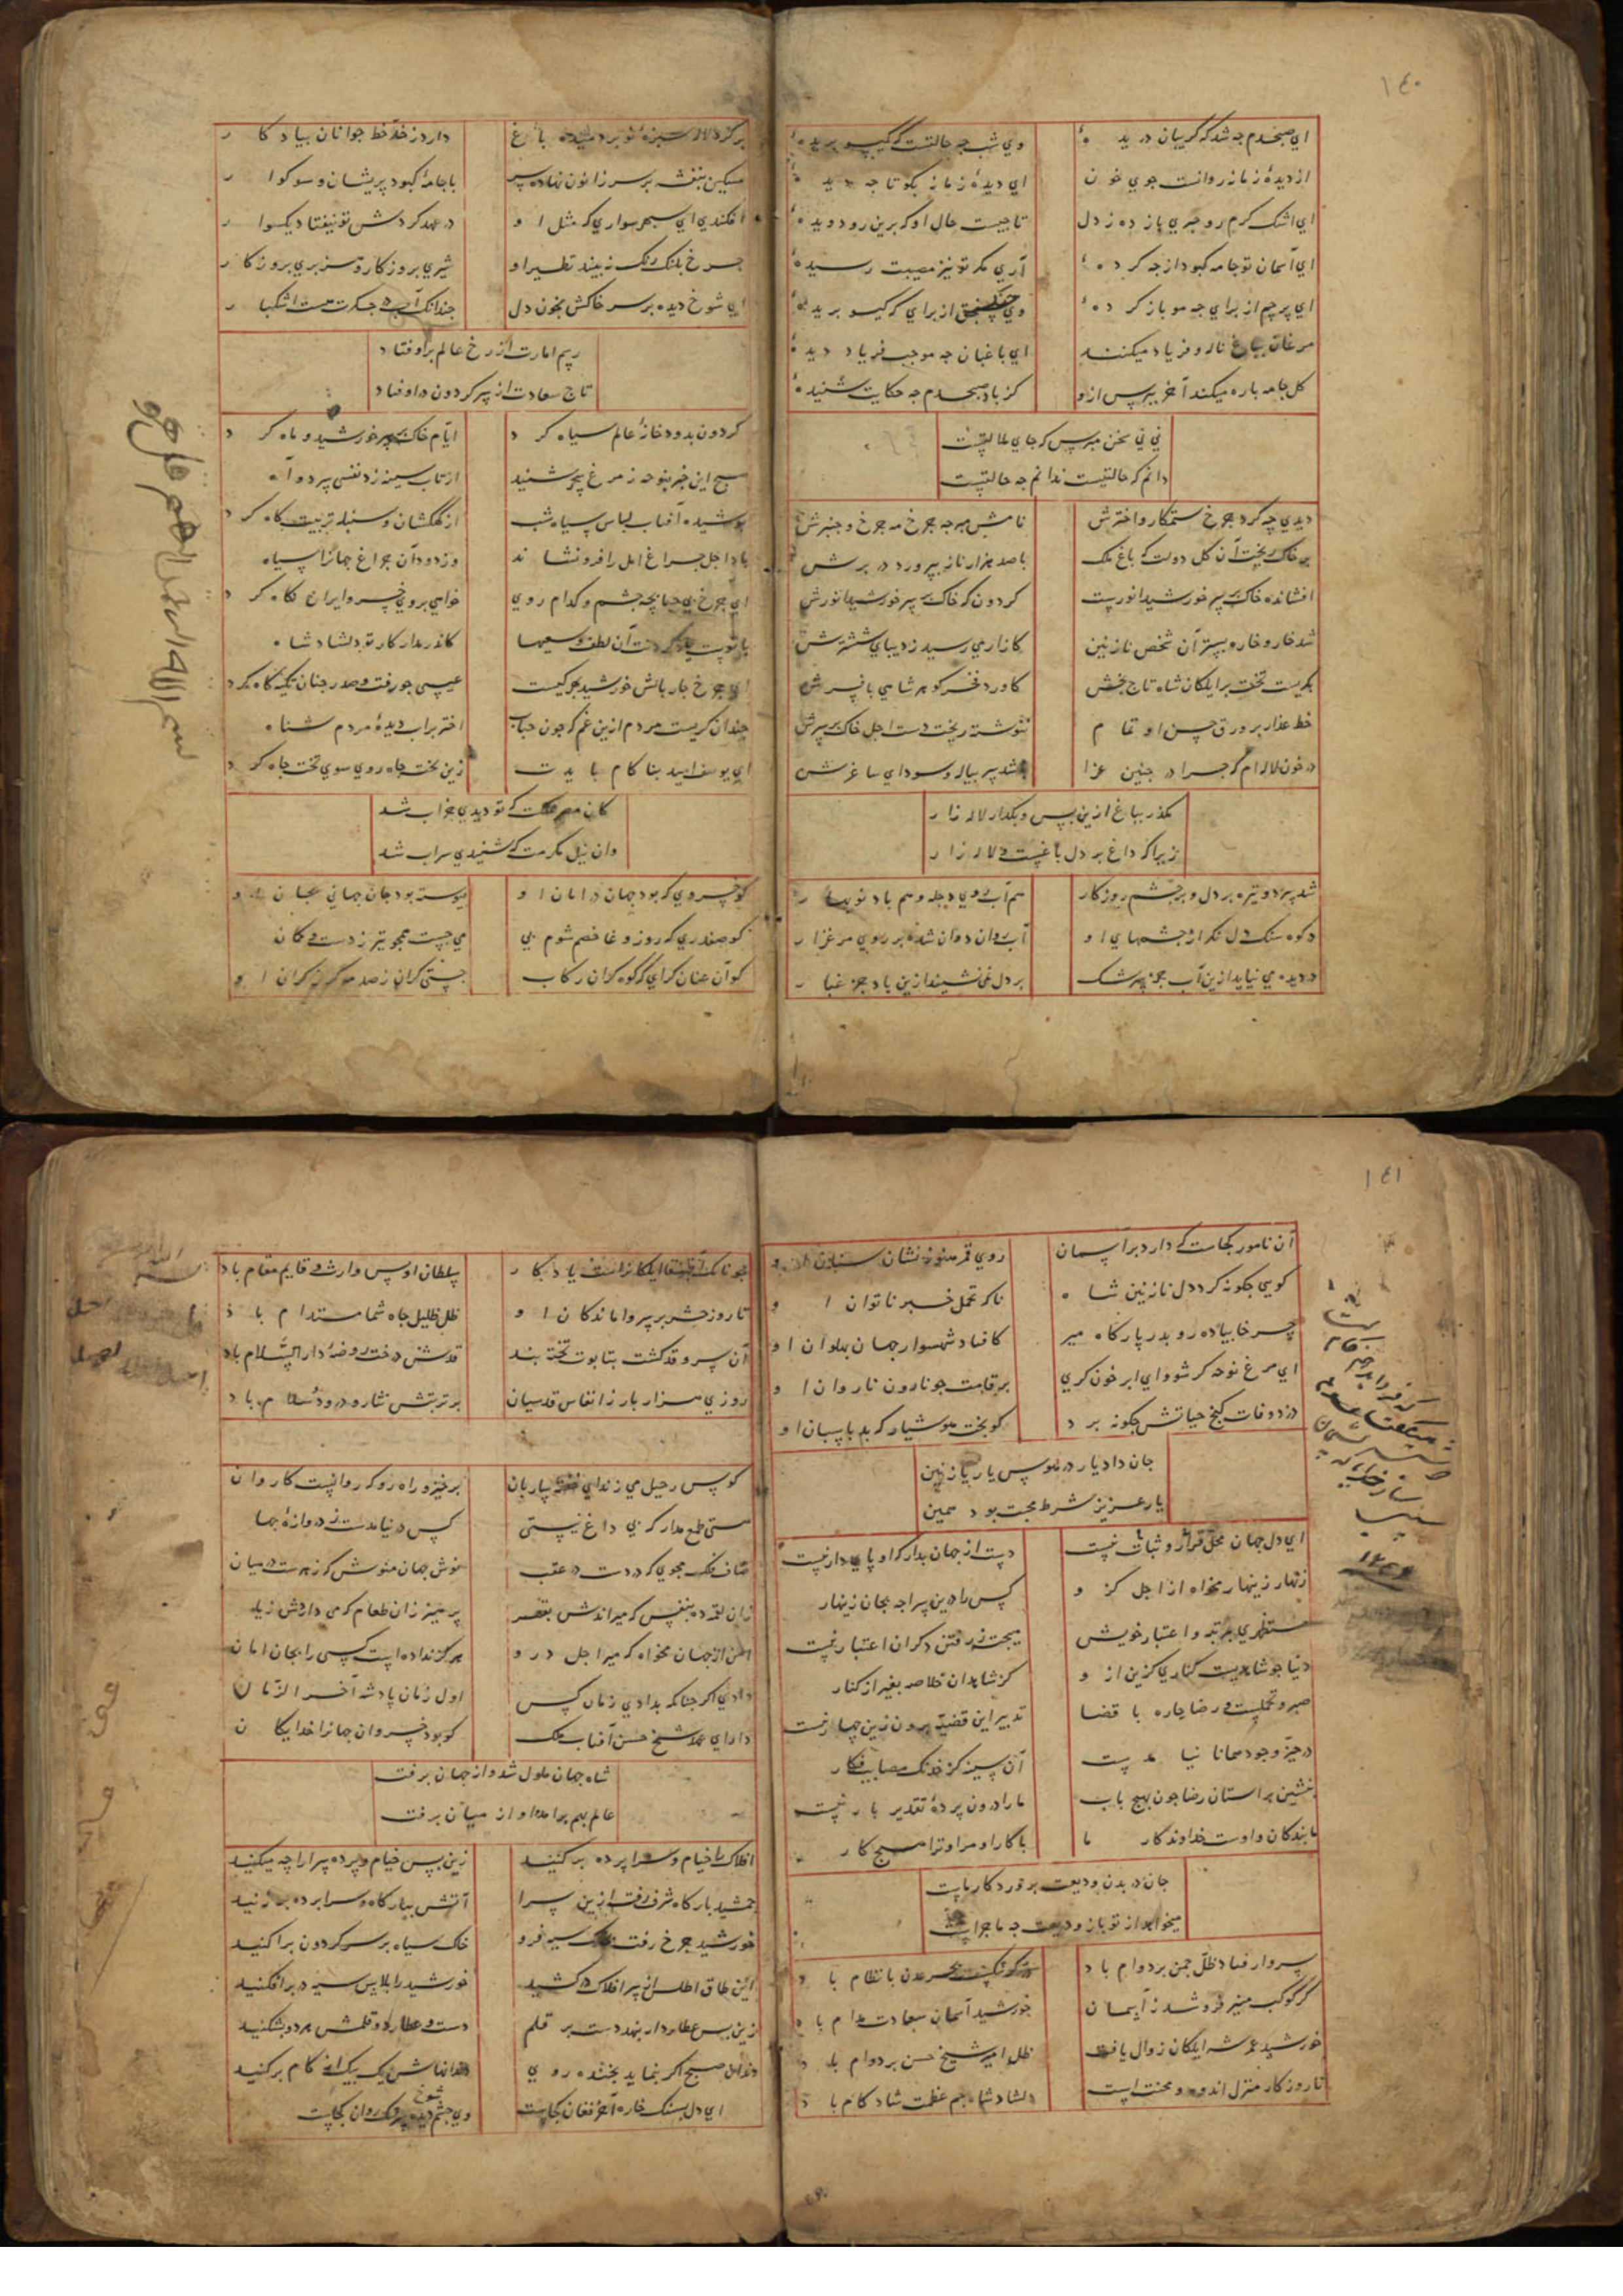 ١٤٠
ای صبحدم چه شد که گریبان دریدهٔ وی شب چه حالتست که گیسو بریدهٔ
از دیدهٔ زمانه روانست جوی خون ای دیدهٔ زمانه بگو تا چه دیدهٔ
ای اشک گرم رو خبری باز ده ز دل تا چیست حال او که برین رو دویدهٔ
ای آسمان تو جامه کبود از چه کردهٔ آری مگر تو نیز مصیبت رسیدهٔ
ای پرچم از برای چه مو باز کردهٔ وی سنجق از برای که گیسو بریدهٔ
مرغان باغ ناله و فریاد میکنند ای باغبان چه موجب فریاد دیدهٔ
گل جامه پاره میکند آخر بپرس ازو کز باد صبحدم چه حکایت شنیدهٔ
نی نی سخن مپرس که جای ملالتیست
دانم که حالتیست ندانم چه حالتیست
دیدی چه کرد چرخ ستمکار و اخترش نامش مبر چه چرخ مه چرخ و چنبرش
بر خاک ریخت آن گل دولت که باغ ملک با صد هزار ناز بپرورد در برش
افشانده خاک بر سر خورشید انورست گردون که خاک بر سر خورشید انورش
شد خار و خاره بستر آن شخص نازنین کازار می رسید ز دیبای ششترش
بگریست تخت بر ایلکان شاه تاج بخش
خط عذار بر ورق حسن او تمام ننوشته ریخت دست اجل خاک بر سرش
در خون لاله ام که چرا در چنین عزا باشد پر پیاله و سودای ساغرش
مگذر بباغ ازین پس و بگذار لاله زار
زیرا که داغ بر دل باغیست لاله زار
شد پرده تیره بر دل و بر چشم روزگار هم آب روی دجله و هم باد نوبهار
در کوه سنگ دل نگر از چشمهای او آب روان دوان شده بر روی مرغزار
در دیده می نیاید ازین آب جز سرشک بر دل نمی نشیند ازین باد جز غبار
بر گرد لاله سبزهٔ نو بردمیده باغ دارد ز خد و خط جوانان بیادگار
مسکین بنفشه بر سر زانو نهاده سر با جامهٔ کبود پریشان و سوکوار
افکندی ای سپهر سواری که مثل او در عهد گردش تو نیفتاد یکسوار
چرخ پلنگ رنگ نبیند نظیر او شیری بروزگار و هزبری بروزگار
ای شوخ دیده بر سر خاکش بخون دل چندانک آب در جگرت هست اشکبار
رسم امارت از رخ عالم برافتاد
تاج سعادت از سر گردون درافتاد
گردون بدود خانهٔ عالم سیاه کرد ایام خاک بر سر خورشید و ماه کرد
صبح این خبر بنوحه ز مرغ سحر شنید از تاب سینه زد نفسی سرد و آه
پوشیده آفتاب لباس سیاه شب از کهکشان و سنبله ترتیب کاه کرد
باد اجل چراغ امل را فرو نشاند وز دود آن چراغ جهانرا سیاه
ای چرخ بی حیا بچه چشم و کدام روی خواهی بروی خسرو ایران نگاه کرد
کاندر مدار کار تو دلشاد شاه
ای چرخ چار بالش خورشید بهر کیست عیسی چو رفت و صدر جنان تکیه گاه کرد
چندان گریست مردم ازین غم که چون حباب اختر بر آب دیدهٔ مردم شناه
ای یوسف امید بناکام بایدت زین تخت جاه روی سوی تخت چاه کرد
کان مصر مملکت که تو دیدی خراب شد
وان نیل مکرمت که شنیدی سراب شد
کو خسروی که بود جهان در امان او پیوسته بود جان جهانی بجان او
کو صفدری که روز وغا خصم شوم پی می جست همچو تیر ز دست و کمان
کو آن عنان گرای که کوه گران رکاب جستی کران ز صدمهٔ گرز گران او
١٤١
آن نامور کجاست که دارد بر آسمان روی قمر هنوز نشان سنان او
گویی چگونه کرد دل نازنین شاه ناگه تحمل خبر ناتوان او
چرخا پیاده رو بدر بارگاه میر کافتاد شهسوار جهان پهلوان او
ای مرغ نوحه گر شو و ای ابر خون گری بر قامت چو نارون ناروان او
دزد وفات گنج حیاتش چگونه برد کو بخت هوشیار که بد پاسبان او
جان داد یار در هوس یار نازنین
یار عزیز شرط محبت بود همین
ای دل جهان محل قرار و ثبات نیست دست از جهان بدار که او پایدار نیست
زنهار زینهار مخواه از اجل کزو کس را درین سراچه بجان زینهار
مستظهری بمرتبه و اعتبار خویش هیچت ز رفتن دگران اعتبار نیست
دنیا چو شاهدیست کناری گزین ازو کز شاهدان خلاصه بغیر از کنار
صبر و تحملیست و رضا چاره با قضا تدبیر این قضیه برون زین چهار نیست
در حیز وجود همانا نیامدست آن سینه کز خدنگ مصایب فکار
بنشین بر آستان رضا چون بهیچ باب ما را درون پردهٔ تقدیر بار نیست
ما بندگان و اوست خداوندکار ما با کار او مرا و ترا هیچ کار
جان در بدن ودیعت پروردگار ماست
میخواهد از تو باز ودیعت چه ماجراست
سرو ار فتاد ظل چمن بر دوام باد
گر کوکب منیر فرو شد ز آسمان خورشید آسمان سعادت مدام باد
خورشید عمر شه ایلکان زوال یافت ظل امیر شیخ حسن بر دوام باد
تا روزگار منزل اندوه و محنت است دلشاد شاه جم عظمت شادکام باد
سلطان اویس وارث و قایم مقام باد
تا روز حشر بر سر واماندگان او ظل ظلیل جاه شما مستدام باد
آن سرو قد که گشت بتابوت تخته بند قدش درخت روضهٔ دار السلام باد
روزی هزار بار ز انفاس قدسیان بر تربتش نثار درود و سلام باد
کوس رحیل می زند ای خفته ساربان برخیز و راه رو که روانست کاروان
هستی طمع مدار که بی داغ نیستی کس در نیامدست ز دروازهٔ جهان
صافی فلک مجوی که دردست در عقب نوش جهان منوش که زهرست در میان
پرهیز زان طعام که می داردش زیان
امن از جهان مخواه که میر اجل درو هرگز نداده است کسی را بجان امان
دادی اگر چنانکه بدادی زمان کس اول زمان پادشه آخر الزمان
دارای عهد شیخ حسن آفتاب ملک کو بود خسروان جهانرا خدایگان
شاه جهان ملول شد و از جهان برفت
عالم بهم برآمد و او از میان برفت
افلاک را خیام و سراپرده برکنید زین پس خیام و پرده سرا را چه میکنید
جمشید بارگاه شرف رفت ازین سرا آتش ببارگاه و سراپرده برزنید
خورشید چرخ رفت بخاک سیه فرو خاک سیاه بر سر گردون پراکنید
این طاق اطلس از سر افلاک درکشید خورشید را پلاس سیه در بر افکنید
زین پس عطارد ار بنهد دست بر قلم دست عطارد و قلمش هر دو بشکنید
دندان صبح اگر بنماید بخنده روی دندانهاش یک بیک از کام برکنید
ای دل بسنگ خاره آخر فغان کجاست وی چشم شوخ دیده سرشک روان کجاست